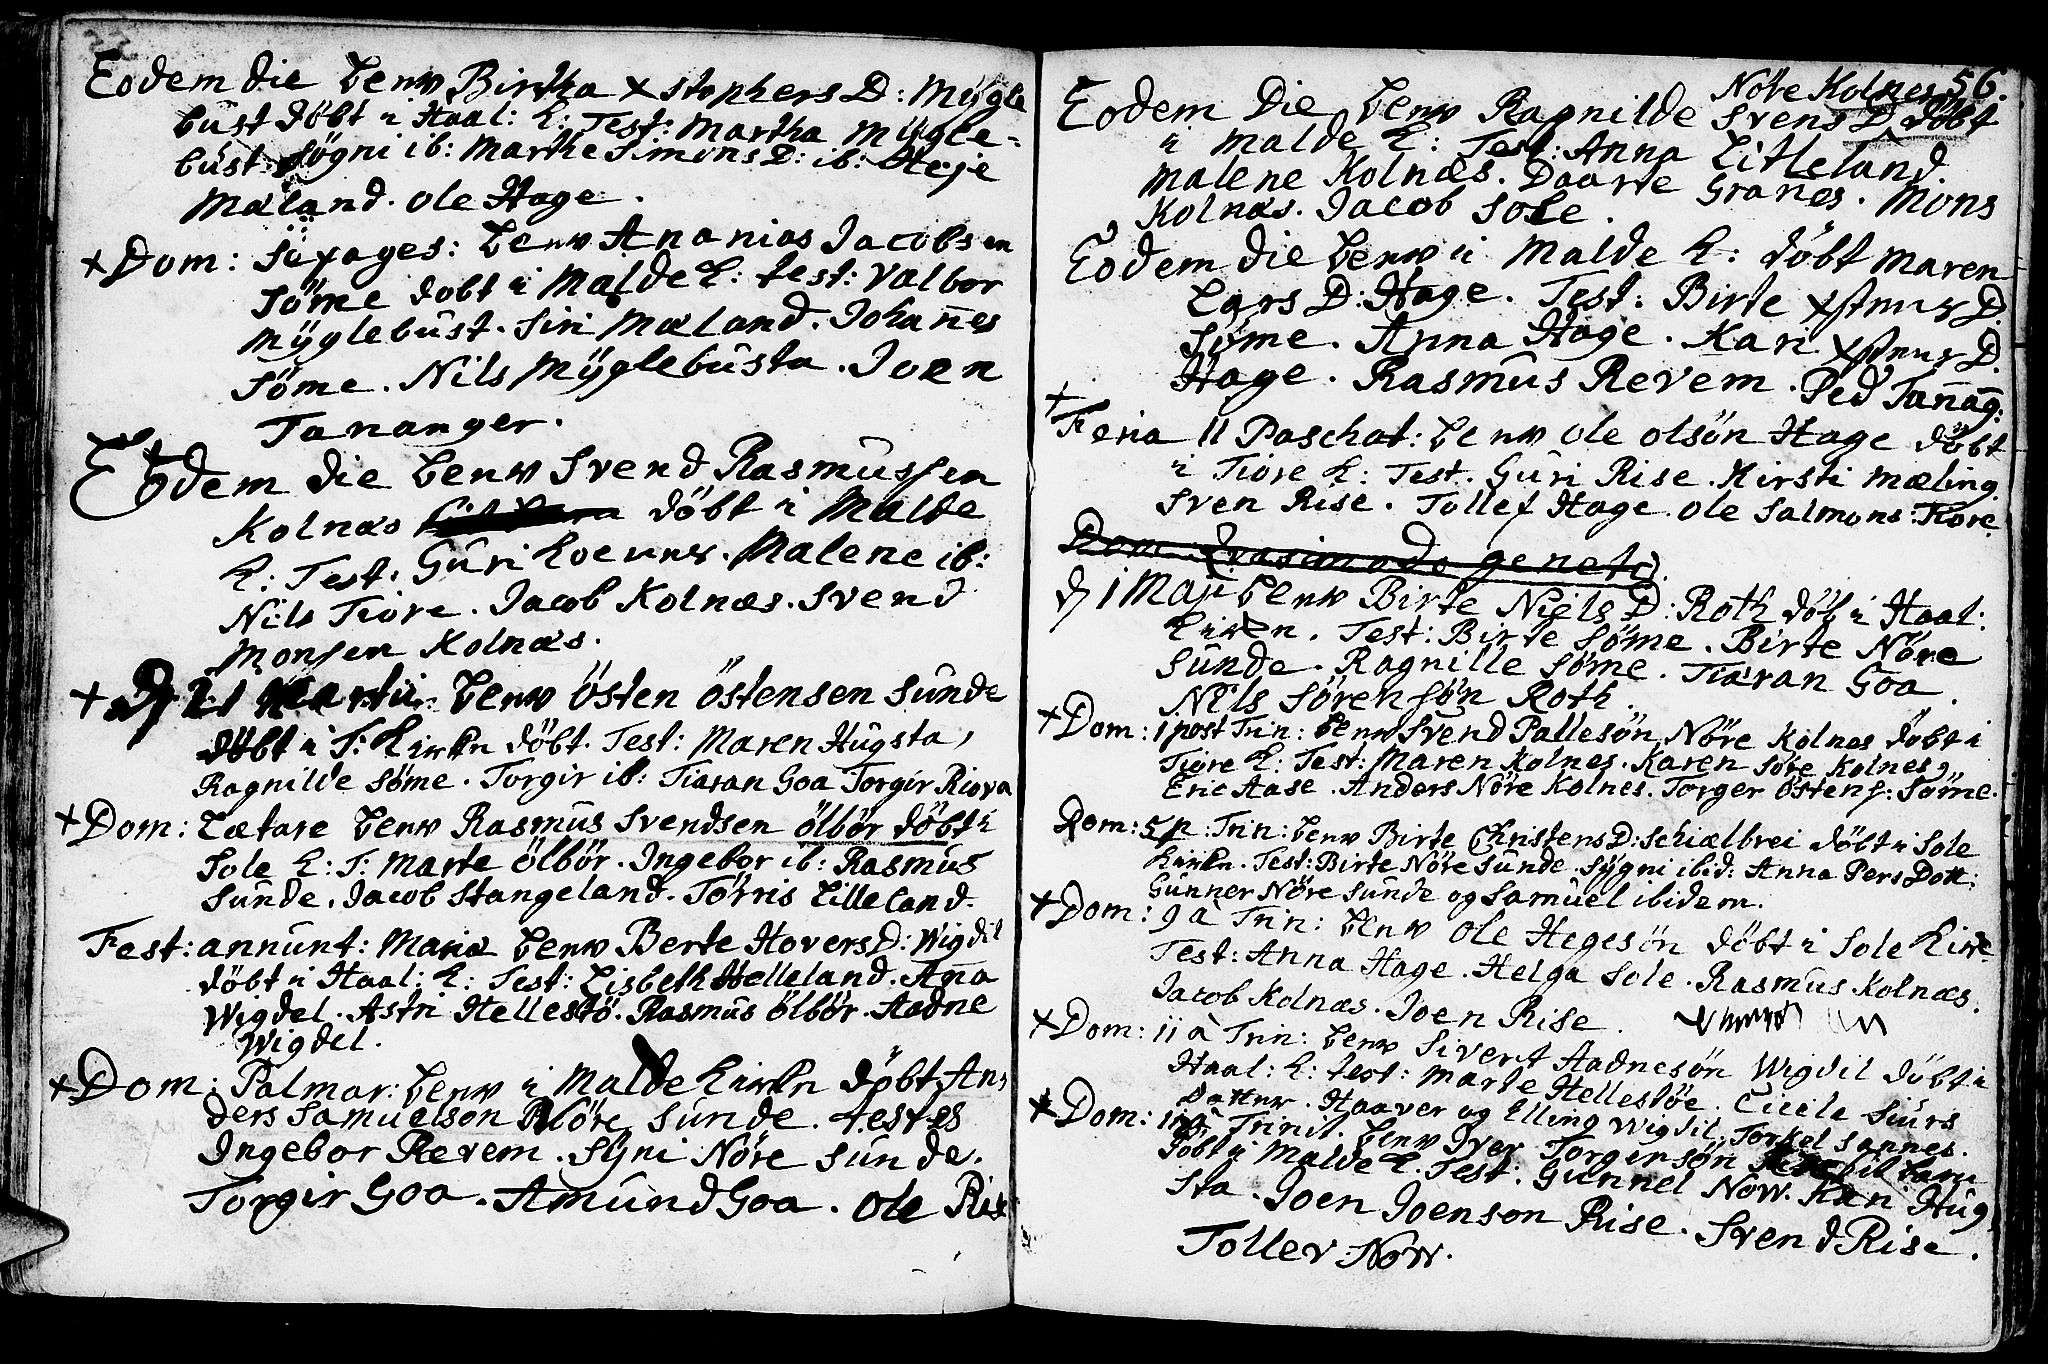 Eodem die benv Birtha xstophers D: Mÿgle
bust döbt i Haal: K: Test: Martha Mÿgle-
bust. Sögni ib: Marthe Simons D: ib:
Mæland. Ole Hage.
+ Dom: Sexages: benv Ananias Jacobsen
Söme döbt i Malde K: test: Valbor
Mÿglebust. Siri Mæland. Johañes
Söme. Nils Mÿglebusta. Joen
Tananger.
Eodem die benv Svend Rasmussen
Kolnæs döbt i Malde
K: Test. Guri. Malene ib:
Nils Tiore. Jacob Kolnæs. Svend
Monsen Kolnæs.
+ D 21 Martii benv Östen Östensen Sunde
döbt i S: Kirken döbt. Test: Maren Hugsta,
Ragnilde Söme. Torgir ib: Tiaran Goa Torgir
+ Dom: Lætare benv Rasmus Svendsen Ölbör döbt i
Sole K: T: Marte Ölbör. Ingebor ib: Rasmus
Sunde. Jacob Stangeland. Törris Lilleland.
Fest: annunt: Mariæ benv Berte Hovers D: Wigdil
döbt i Haal: K: Test: Lisbeth Helleland. Aña
Wigdel. Astri Hellestö. Rasmus Ölbör. Aadne
Wigdel.
+ Dom: Palmar: benv i Malde Kirken döbt An,
ders Samuelson Nöre Sunde. testes
Ingebor Revem. Syni Nöre Sunde.
Torgir Goa. Amund Goa. Ole Rise
56.
Nöre Kolnes
Eodem Die benv Ragnilde Svens D döbt
i Malde K: Test: Anna Litleland
Malene Kolnæs. Daarte Granes. Mons
Kolnæs. Jacob Sole.
Eodem die benv i Malde K: döbt Maren
Lars D: Hage. Test: Birte D.
Söme. Anna Hage. Kari D.
Hage. Rasmus Revem. Ped Tañag:
+
Feria II Paschat: benv Ole Olsön Hage döbt
i Tiore K: Test. Guri Rise. Kirsti Mæling.
Sven Rise. Tollef Hage. Ole Salmons: Tiore.
Dom: Qvasimodo geneti
D 1 Maji benv Birte Niels D: Roth döb i Haal:
Kirken. Test: Birte Söme. Birte Nöre
Sunde. Ragnille Söme. Tiaran Goa.
Nils Sörensön Roth.
+ Dom: 1 post Trin: benv Svend Pallesön Nöre Kolnes döbt i
Tiore K: Test: Maren Kolnes. Karen Söre Kolnes,
Eric Aase. Anders Nöre Kolnes. Torger Östens: Söme.
Dom: 5 p: Trin: benv Birte Christens D: Schiælbrei döbt i Sole
Kirken. Test: Birte Nöre Sunde. Sÿgni ibid: Anna Pers Dott:
Gunner Nöre Sunde og Samuel ibidem.
+ Dom: 9 à Trin: benv Ole Hegesön döbt i Sole Kirke.
Test: Anna Hage. Helga Sole. Rasmus Kolnæs.
Jacob Kolnæs. Joen Rise.
+ Dom: 11 à Trin: benv Sivert Aadnesön Wigdil döbt i
Haal: K: test: Marte Hellestöe. Cicele Siurs
Datter. Haaver og Elling Wigdil. Torkel Sannes.
+ Dom: à Trinit. benv Iver Torgirsön
döbt i Malde K. Test: Gunnel Now. Kari Hug
sta. Joen Joenson Rise. Svend Rise.
Tollev Now.